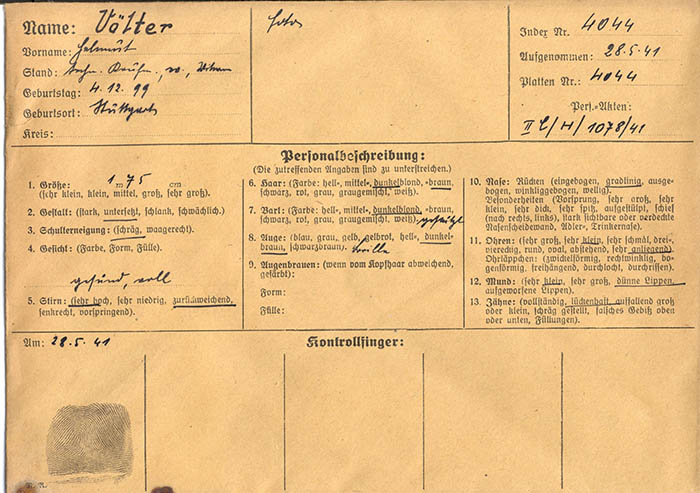 Name: Völter
Vorname: Helmut
Stand: techn. Kaufm.,
Geburtstag: 4.12.99
Geburtsort: Stuttgart
Kreis:
Foto
Index Nr. 4044
Aufgenommen: 28.5.41
Platten Nr.: 4044
Pers.-Akten:
1078/41
Personalbeschreibung:
(Die zutreffenden Angaben sind zu unterstreichen.)
1. Größe: 1 m 75 cm
(sehr klein, klein, mittel, groß, sehr groß).
2. Gestalt: (stark, untersetzt, schlank, schwächlich).
3. Schulterneigung: (schräg, waagerecht).
4. Gesicht: (Farbe, Form, Fülle).
gesund, voll
5. Stirn: (sehr hoch, sehr niedrig, zurückweichend,
senkrecht, vorspringend).
6. Haar: (Farbe: hell-, mittel-, dunkelblond, -braun,
schwarz, rot, grau, graugemischt, weiß).
7. Bart: (Farbe: hell-, mittel-, dunkelblond, -braun,
schwarz, rot, grau, graugemischt, weiß). gestutzt
8. Auge: (blau, grau, gelb, gelbrot, hell-, dunkel-
braun, schwarzbraun). Brille
9. Augenbrauen: (wenn vom Kopfhaar abweichend,
gefärbt):
Form:
Fülle:
10. Nase: Rücken (eingebogen, gradlinig, ausge-
bogen, winkliggebogen, wellig).
Besonderheiten (Vorsprung, sehr groß, sehr
klein, sehr dick, sehr spitz, aufgestülpt, schief
(nach rechts, links), stark sichtbare oder verdeckte
Nasenscheidewand, Adler-, Trinkernase).
11. Ohren: (sehr groß, sehr klein, sehr schmal, drei-
viereckig, rund, oval, abstehend, sehr anliegend)
Ohrläppchen: (zwickelförmig, rechtwinklig, bo-
gensförmig, freihängend, durchlocht, durchrissen).
12. Mund: (sehr klein, sehr groß, dünne Lippen,
aufgeworfene Lippen).
13. Zähne: (vollständig, lückenhaft, auffallend groß
oder klein, schräg gestellt, falsches Gebiß oben
oder unten, Füllungen).
Am: 28.5.41
Kontrollfinger: